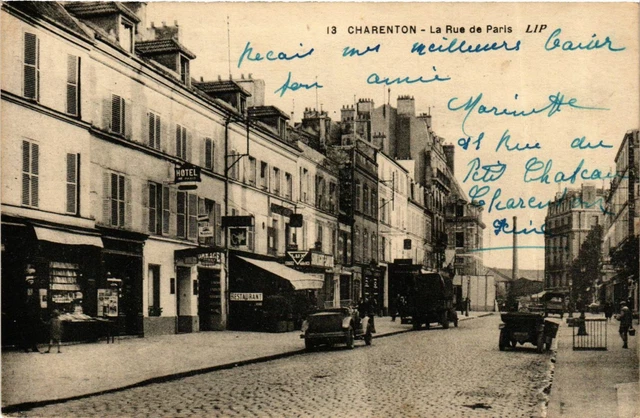 13 CHARENTON - La Rue de Paris LIP
Recois mes meilleurs Baisier
ton amie
Marinette
21 Rue du
Petit Chateau
Charenton
Seine
HOTEL
RESTAURANT